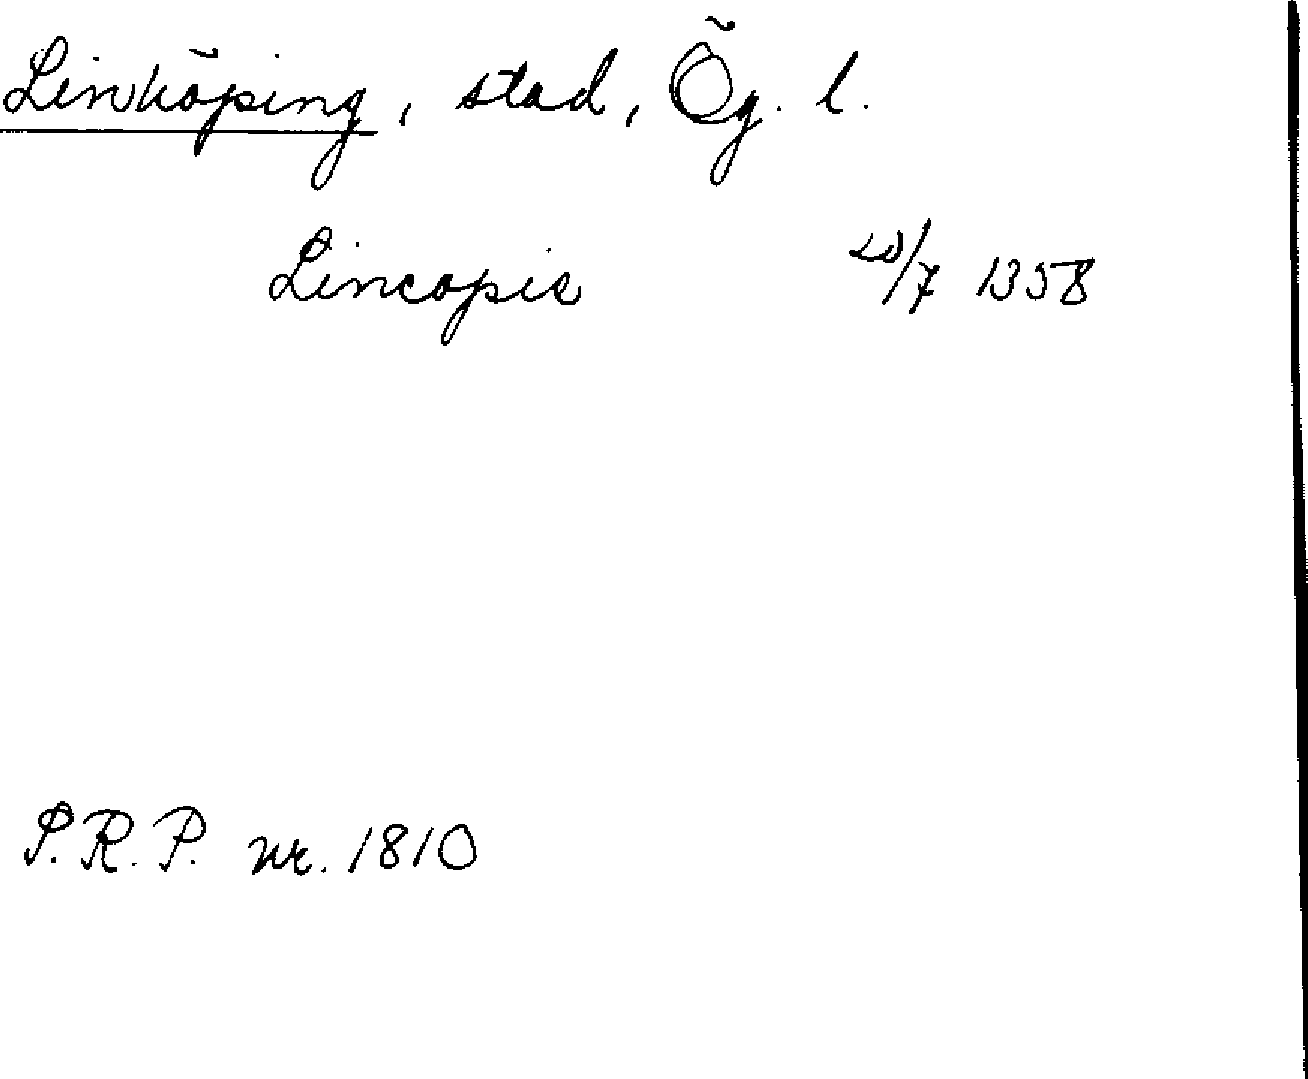 Linköping, stad, Ög. l.
Lincopie 20/7 1358
S.R.P. nr. 1810